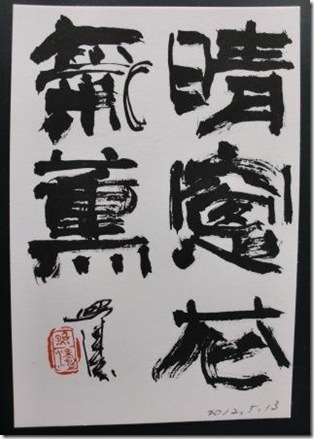 晴窻花
氣薫
2012.5.13